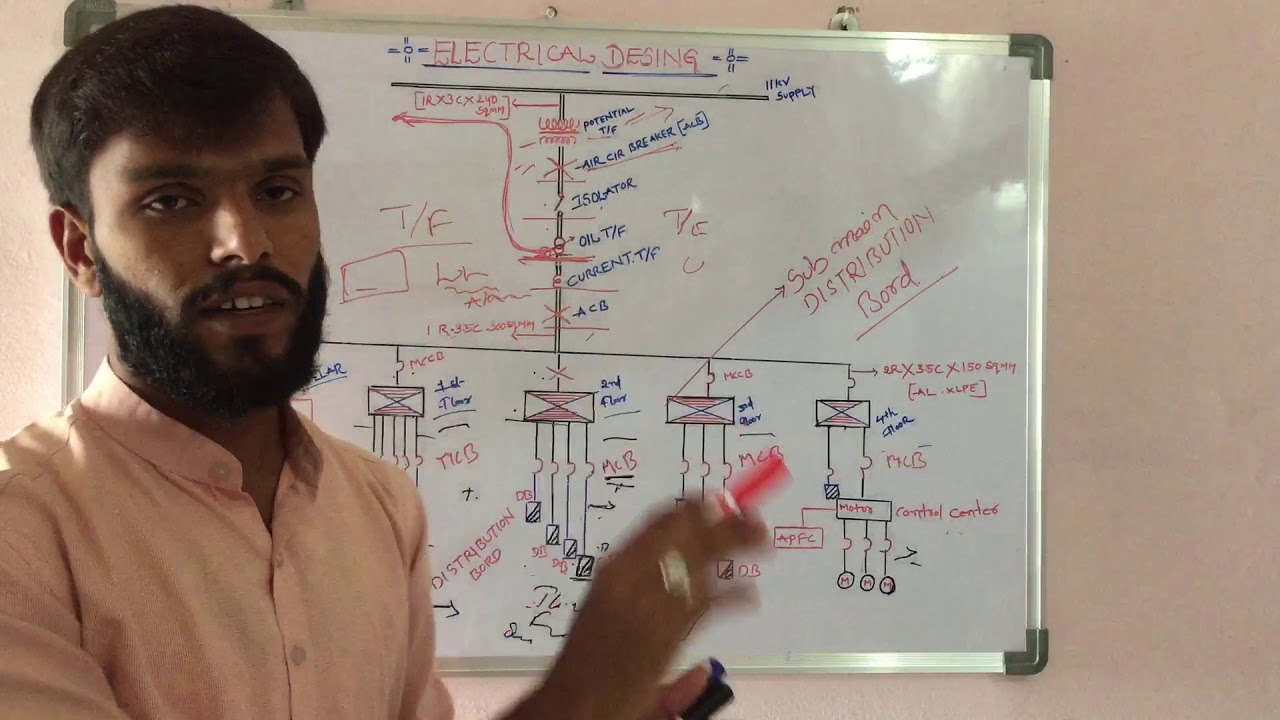 ELECTRICAL DESING
11KV
SUPPLY
[1RX3CX240
SQMM]
POTENTIAL
T/F
AIR CIR BREAKER [ACB]
ISOLATOR
OIL T/F
CURRENT.T/F
ACB
1 R.35C 300SQMM
T/F
T/F
Sub main
DISTRIBUTION
Bord
MCCB
1st
Floor
MCB
2nd
Floor
MCB
MCCB
3rd
floor
MCB
2RX35CX150 SQMM
[AL.XLPE]
4th
floor
MCB
DB
DB
DB
DISTRIBUTION
BORD
DB
Motor
control center
APFC
M
M
M